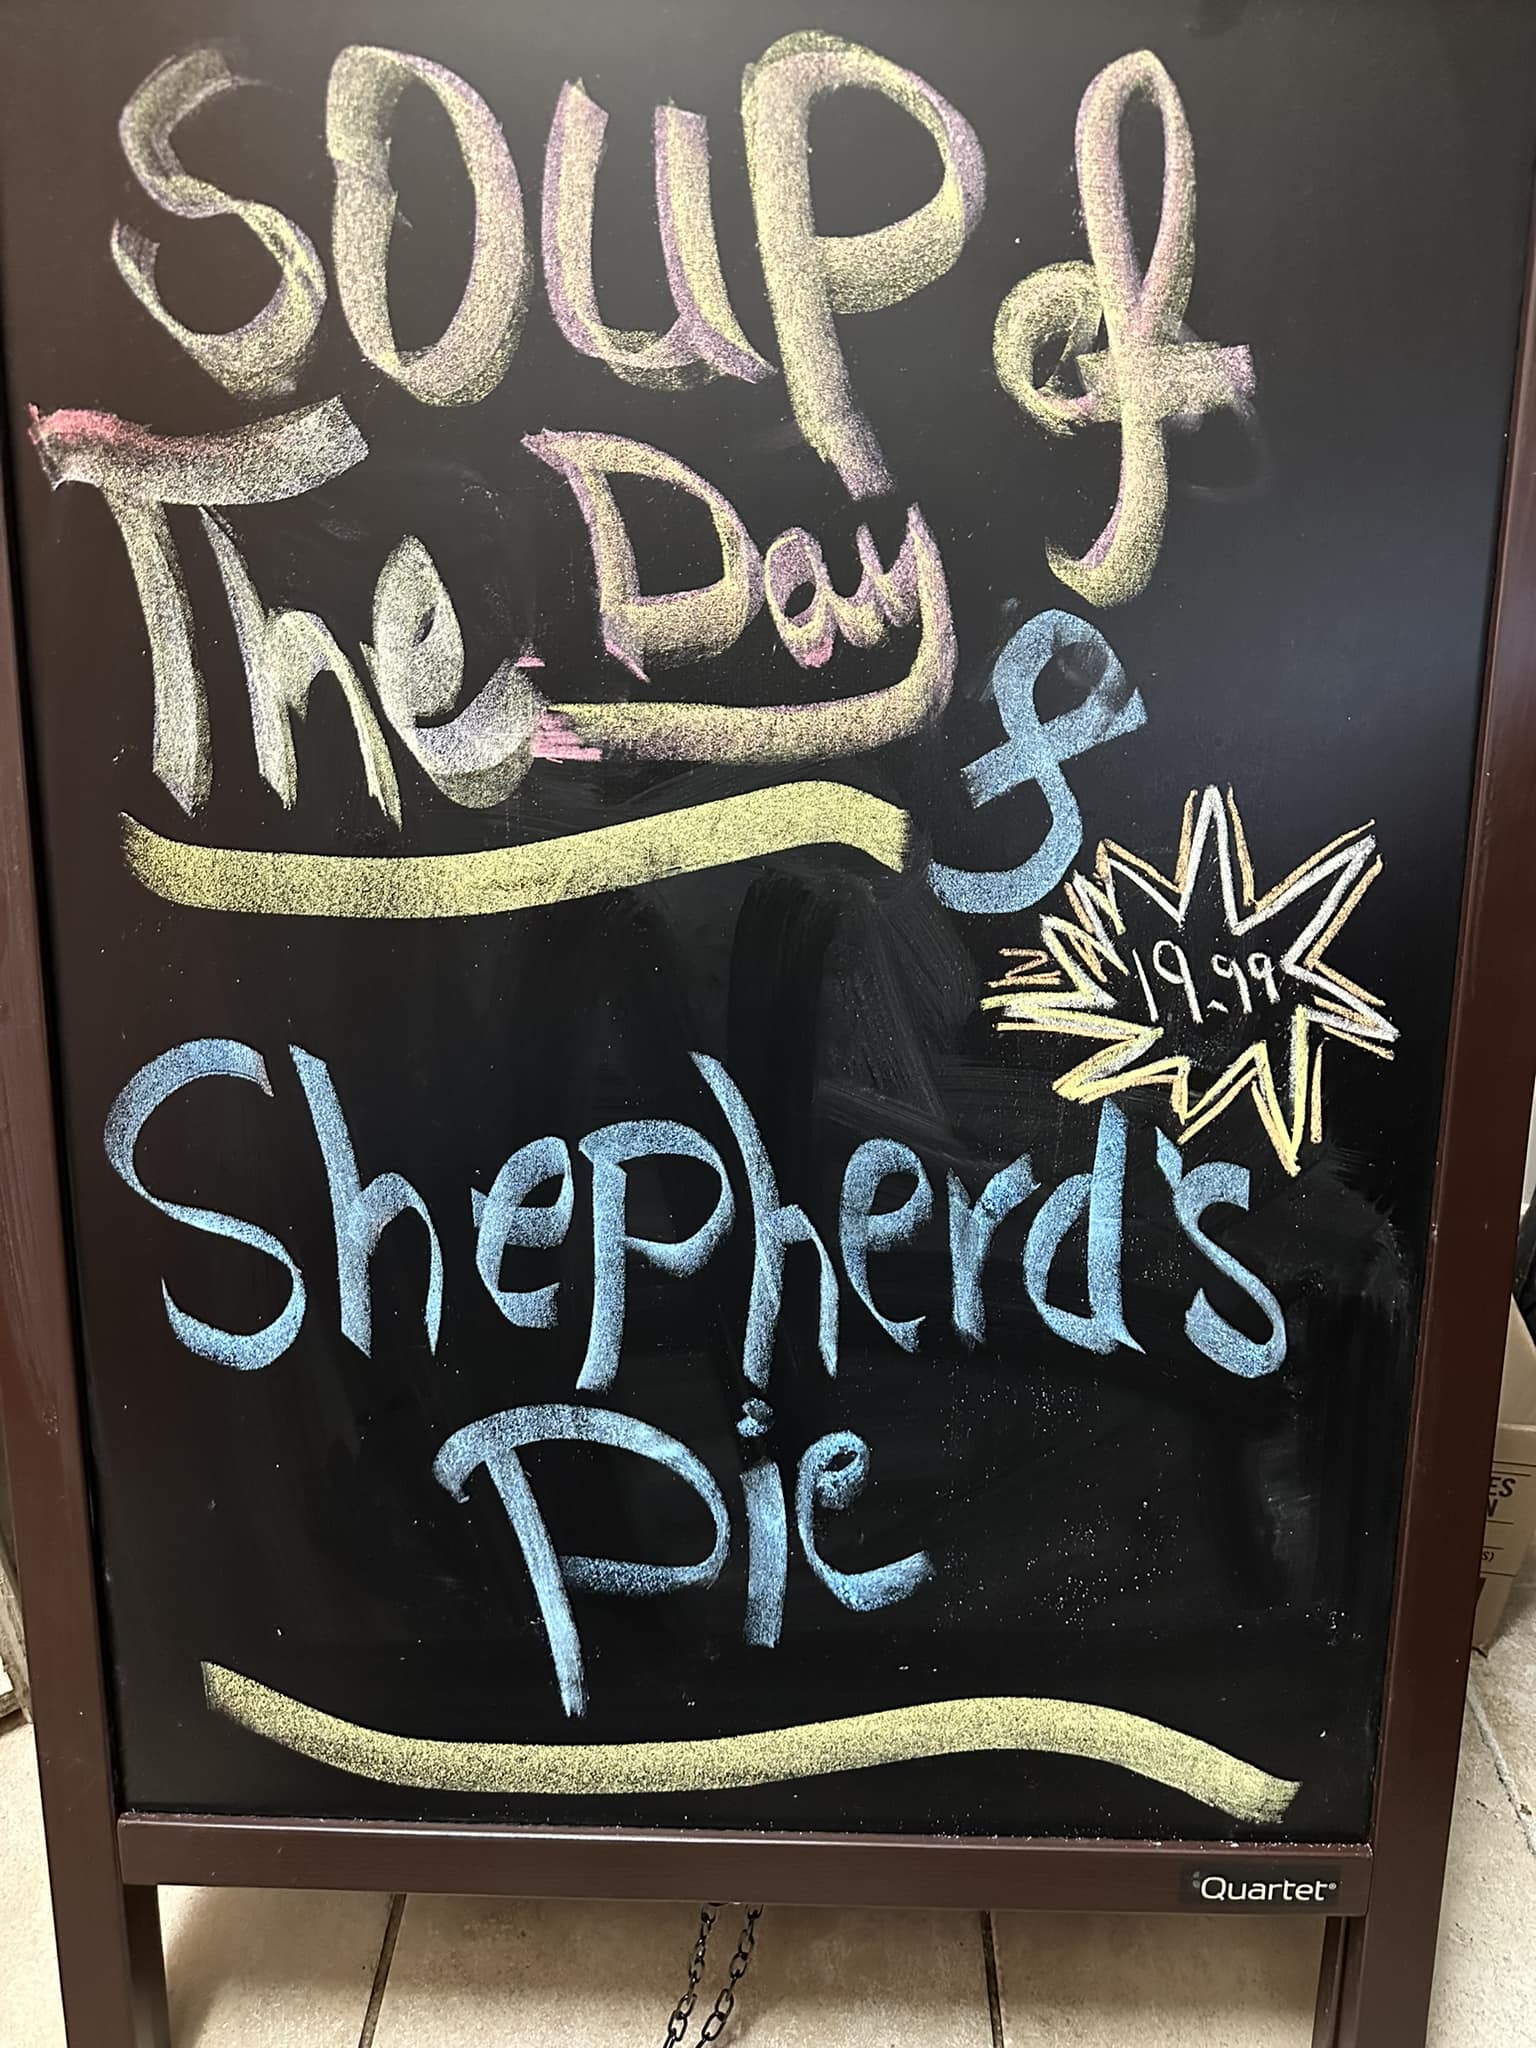 Soup of
The Day &
19.99
Shepherd's
Pie
Quartet
ES
N
S)